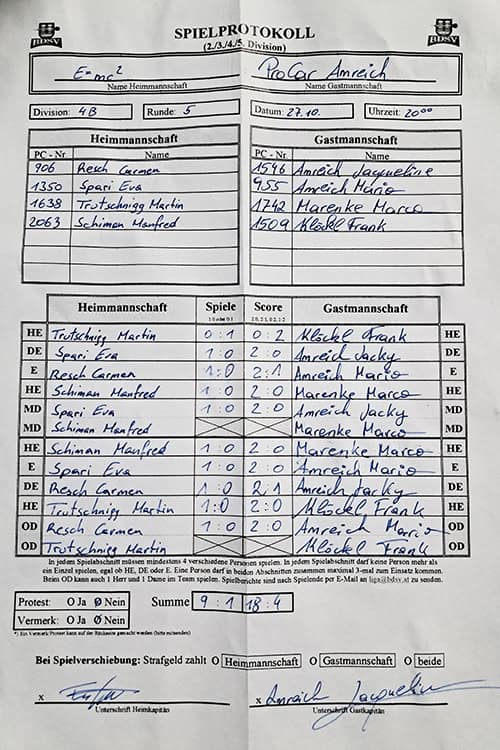 BDSV
SPIELPROTOKOLL
BDSV
(2./3./4./5. Division)
E=mc²
ProCar Amreich
Name Heimmannschaft
Name Gastmannschaft
Division: 4B
Runde: 5
Datum: 27.10.
Uhrzeit: 20⁰⁰
Heimmannschaft
Gastmannschaft
PC - Nr. Name
PC - Nr. Name
906 Resch Carmen
1546 Amreich Jacqueline
1350 Spari Eva
955 Amreich Mario
1638 Trutschnigg Martin
1742 Marenke Marco
2063 Schiman Manfred
1509 Klöckl Frank
Heimmannschaft Spiele Score Gastmannschaft
HE Trutschnigg Martin 0:1 0:2 Klöckl Frank HE
DE Spari Eva 1:0 2:0 Amreich Jacky DE
E Resch Carmen 1:0 2:1 Amreich Mario E
HE Schiman Manfred 1:0 2:0 Marenke Marco HE
MD Spari Eva 1:0 2:0 Amreich Jacky MD
MD Schiman Manfred Marenke Marco MD
HE Schiman Manfred 1:0 2:0 Marenke Marco HE
E Spari Eva 1:0 2:0 Amreich Mario E
DE Resch Carmen 1:0 2:1 Amreich Jacky DE
HE Trutschnigg Martin 1:0 2:0 Klöckl Frank HE
OD Resch Carmen 1:0 2:0 Amreich Mario OD
OD Trutschnigg Martin Klöckl Frank OD
In jedem Spielabschnitt müssen mindestens 4 verschiedene Personen spielen. In jedem Spielabschnitt darf keine Person mehr als
ein Einzel spielen, egal ob HE, DE oder E. Eine Person darf in beiden Abschnitten zusammen maximal 3-mal zum Einsatz kommen.
Beim OD kann auch 1 Herr und 1 Dame im Team spielen. Spielberichte sind nach Spielende per E-Mail an liga@bdsv.at zu senden.
Protest: O Ja O Nein
Summe 9:1 18:4
Vermerk: O Ja O Nein
*) Ein Vermerk/Protest kann auf der Rückseite gemacht werden (bitte mitsenden)
Bei Spielverschiebung: Strafgeld zahlt O Heimmannschaft O Gastmannschaft O beide
x
x Amreich Jacqueline
Unterschrift Heimkapitän
Unterschrift Gastkapitän